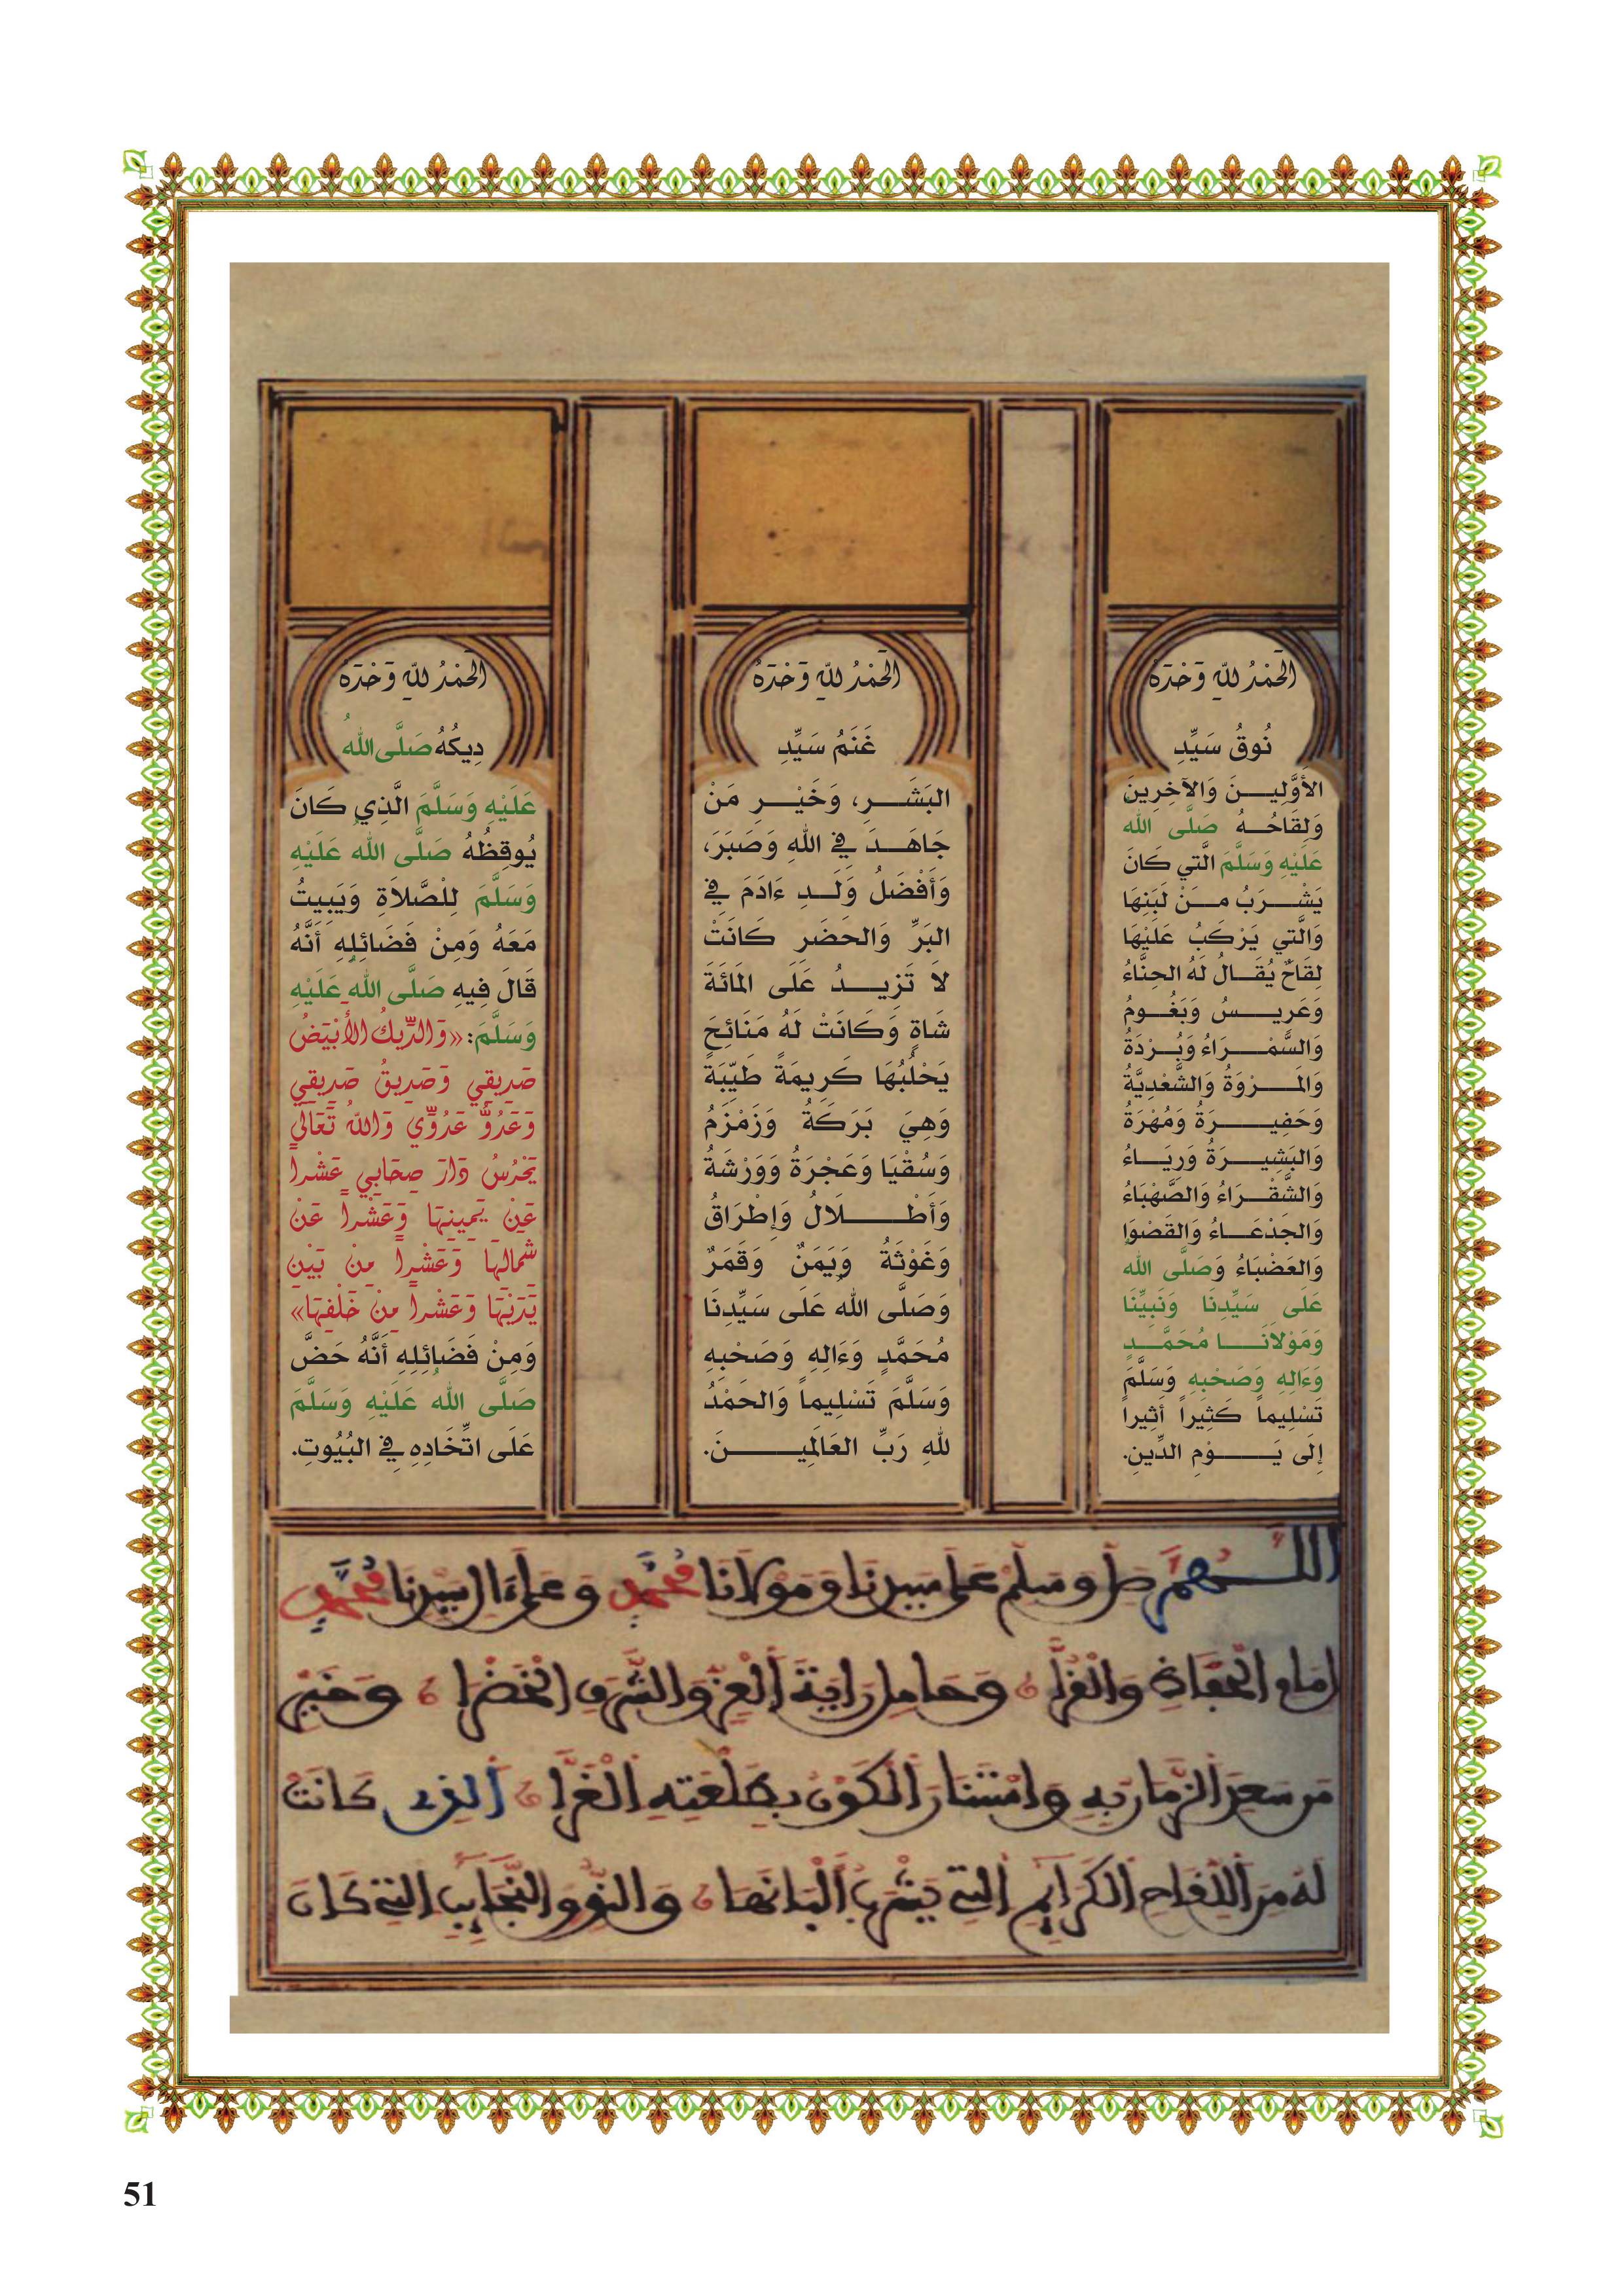 الحَمْدُ للهِ وَحْدَهُ
نُوقُ سَيِّدِ
الأَوَّلِيـنَ وَالآخِرِينَ
وَلِقَاحُـهُ صَلَّى اللهُ
عَلَيْهِ وَسَلَّمَ الَّتي كَانَ
يَشْـرَبُ مـنْ لَبَنِهَا
وَالَّتي يَرْكَبُ عَلَيْهَا
لِقَاحٌ يُقَـالُ لَهُ الحِنَّاءُ
وَعَرِيـسُ وَبَغُـومُ
وَالسَّمْـرَاءُ وَبُـرْدَةُ
وَالمَـرْوَةُ وَالسَّعْدِيَّةُ
وَحَفِيـرَةُ وَمُهْرَةُ
وَالبَشِيـرَةُ وَرِيَـاءُ
وَالشَّقْـرَاءُ وَالصَّهْبَاءُ
وَالجِدْعَـاءُ وَالقَصْوَا
وَالعَضْبَاءُ وَصَلَّى اللهُ
عَلَى سَيِّدِنَا وَنَبِيِّنَا
وَمَوْلَانَـا مُحَمَّـدٍ
وَءَالِهِ وَصَحْبِهِ وَسَلَّمَ
تَسْلِيماً كَثِيراً أَثِيراً
إِلَى يَـوْمِ الدِّينِ.
الحَمْدُ للهِ وَحْدَهُ
غَنَمُ سَيِّدِ
البَشَـرِ، وَخَيْـرِ مَنْ
جَاهَـدَ فِي اللهِ وَصَبَرَ،
وَأَفْضَلُ وَلَـدِ ءَادَمَ فِي
البَرِّ وَالحَضَرِ كَانَتْ
لَا تَزِيـدُ عَلَى المَائَةَ
شَاةٍ وَكَانَتْ لَهُ مَنَائِحَ
يَحْلُبُهَا كَرِيمَةً طَيِّبَةً
وَهِيَ بَرَكَةُ وَزَمْزَمُ
وَسُقْيَا وَعَجْرَةُ وَوَرْشَةُ
وَأَطْـلَالُ وَإِطْرَاقُ
وَغَوْثَةُ وَيَمَنٌ وَقَمَرٌ
وَصَلَّى الله عَلَى سَيِّدِنَا
مُحَمَّدٍ وَءَالِهِ وَصَحْبِهِ
وَسَلَّمَ تَسْلِيماً وَالحَمْدُ
للهِ رَبِّ العَالَمِيـنَ.
الحَمْدُ للهِ وَحْدَهُ
دِيكُهُ صَلَّى اللهُ
عَلَيْهِ وَسَلَّمَ الَّذِي كَانَ
يُوقِظُهُ صَلَّى اللهُ عَلَيْهِ
وَسَلَّمَ لِلْصَّلَاةِ وَيَبِيتُ
مَعَهُ وَمِنْ فَضَائِلِهِ أَنَّهُ
قَالَ فِيهِ صَلَّى اللهُ عَلَيْهِ
وَسَلَّمَ: «وَالدِّيكُ الأَبْيَضُ
صَدِيقِي وَصَدِيقُ صَدِيقِي
وَعَدُوُّ عَدُوِّي وَاللهُ تَعَالَى
يَحْرُسُ دَارَ صِحَابِي عَشْراً
عَنْ يَمِينِهَا وَعَشْراً عَنْ
شَمَالِهَا وَعَشْراً مِنْ بَيْنِ
يَدَيْهَا وَعَشْراً مِنْ خَلْفِهَا»
وَمِنْ فَضَائِلِهِ أَنَّهُ حَضَّ
صَلَّى اللهُ عَلَيْهِ وَسَلَّمَ
عَلَى اتِّخَادِهِ فِي البُيُوتِ.
اللَّـهُمَّ صَلِّ وَسَلِّمْ عَلَى سَيِّدِنَا وَمَوْلَانَا مُحَمَّدٍ وَعَلَى ءَالِ سَيِّدِنَا مُحَمَّدٍ
إِمَامِ الْحُفَاةِ وَالْغُرَّا وَحَامِلِ رَايَةِ الْعِزِّ وَالشَّرَفِ الْخَضْرَا وَخَيْرِ
مَن سَعِدَ الزَّمَانُ بِهِ وَاسْتَنَارَ الْكَوْنُ بِطَلْعَتِهِ الْغَرَّا الَّذِي كَانَتْ
لَهُ مِنَ اللِّقَاحِ الْكَرَايِمِ الَّتِي يَشْرَبُ أَلْبَانَهَا وَالنُّوقِ النَّجَايِبِ الَّتِي كَانَ
51